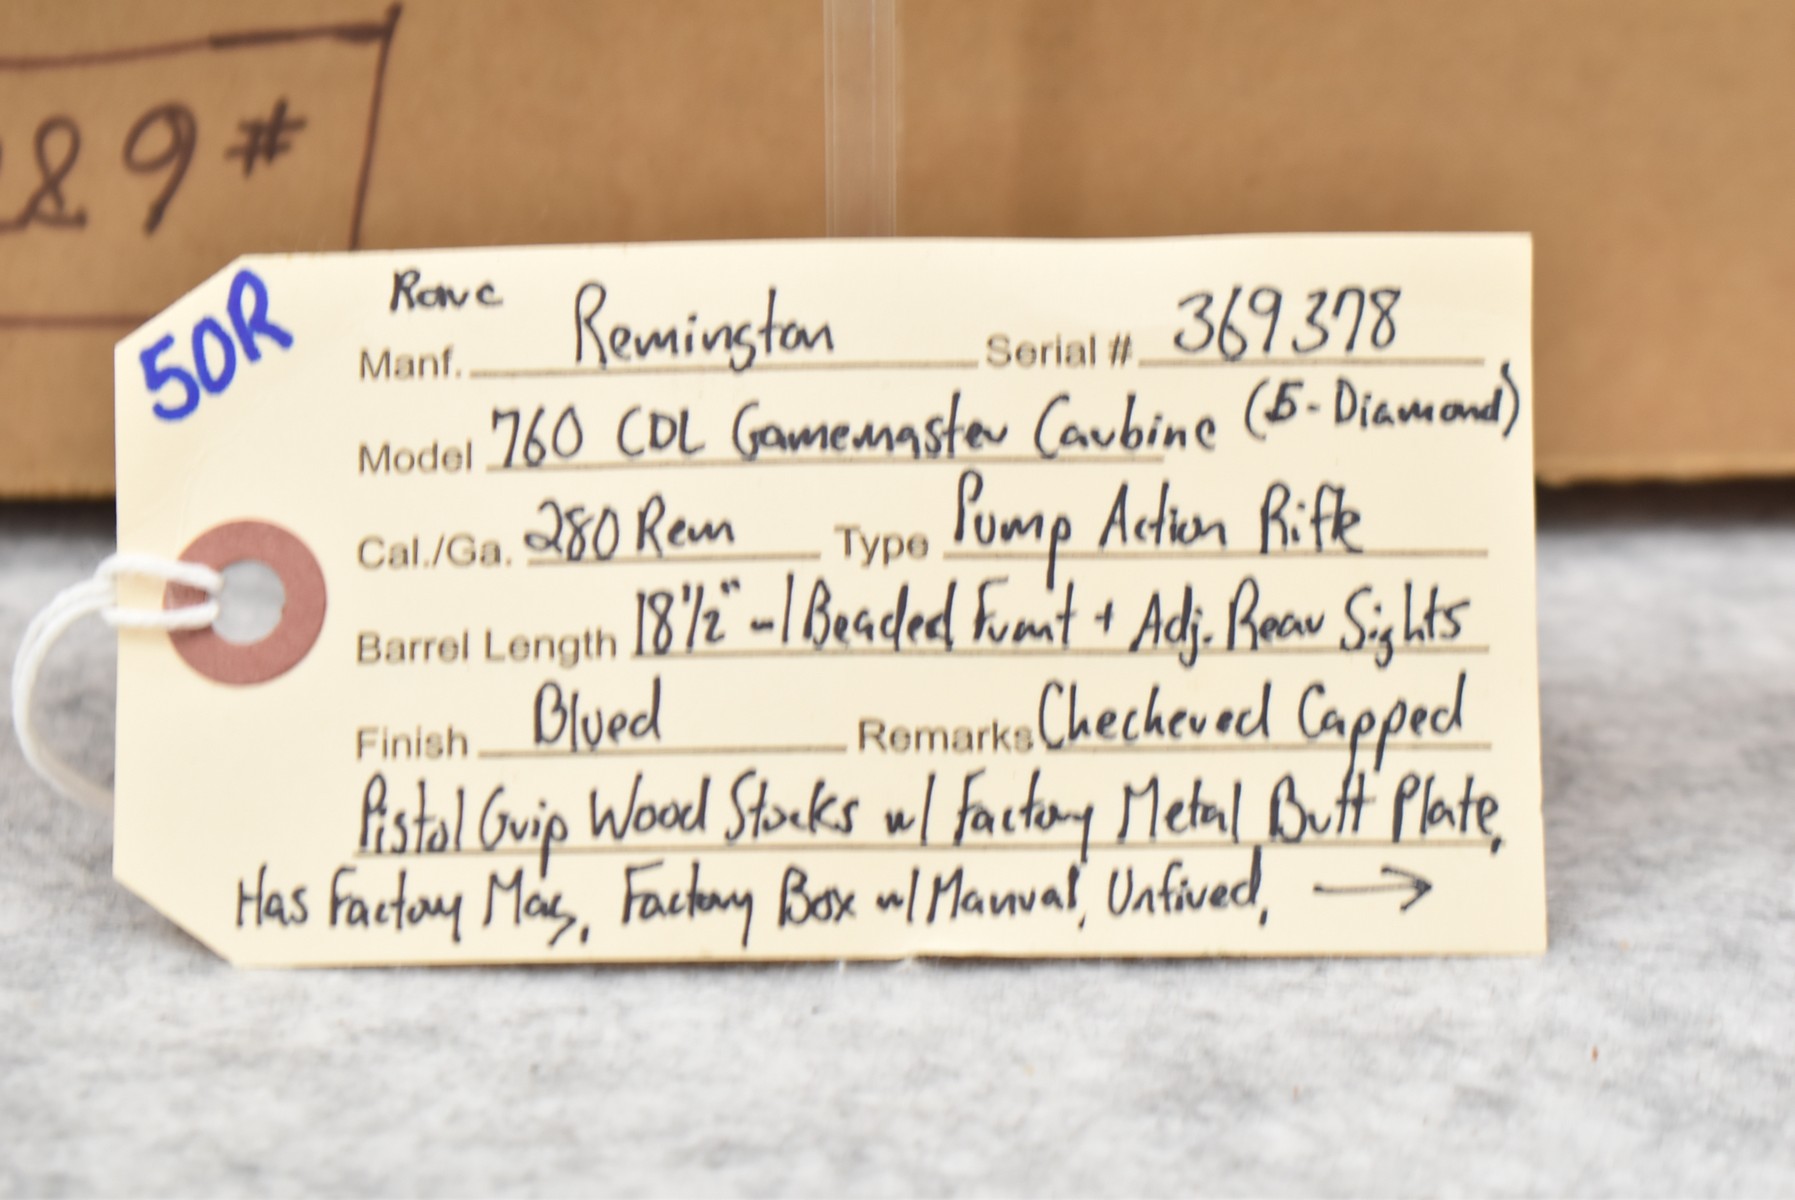 89#
50R
Rare
Manf. Remington Serial # 369378
Model 760 CDL Gamemaster Carbine (5-Diamond)
Cal./Ga. 280 Rem Type Pump Action Rifle
Barrel Length 18 1/2" w/ Beaded Front + Adj. Rear Sights
Finish Blued Remarks Checkered Capped
Pistol Grip Wood Stocks w/ Factory Metal Butt Plate,
Has Factory Mag, Factory Box w/ Manual, Unfired, →